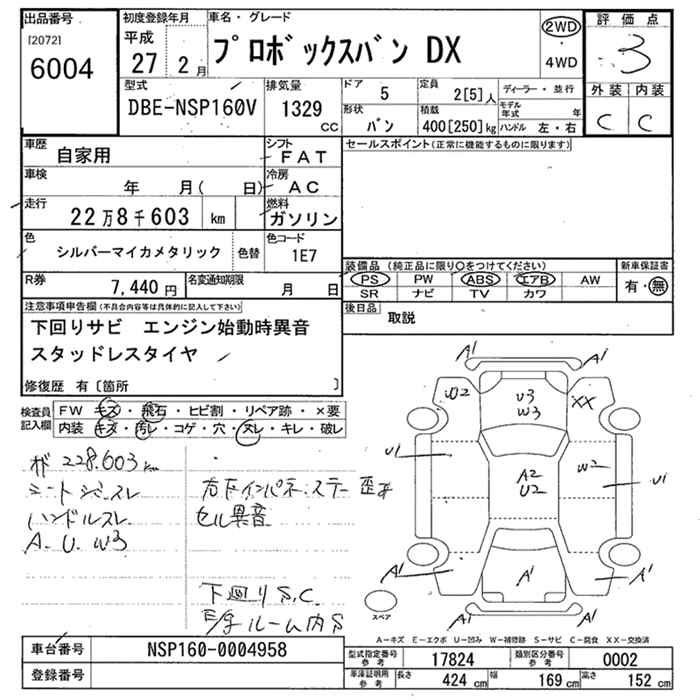 出品番号
[2072]
6004
初度登録年月
平成
27 2月
車名・グレード
プロボックスバン DX
2WD
・
4WD
評価点
3
外装 内装
C C
型式
DBE-NSP160V
排気量
1329
CC
ドア
5
定員
2[5]人
ディーラー・並行
形状
バン
積載
400[250]kg
モデル年式 年
ハンドル 左・右
車歴
自家用
シフト
FAT
車検
年 月( 日)
冷房
AC
走行
22万8千603 km
燃料
ガソリン
色
シルバーマイカメタリック
色替
色コード
1E7
R券
7,440円
名変通知期限
月 日
セールスポイント(正常に機能するものに限ります)
装備品 (純正品に限り○をつけてください)
PS PW ABS エアB AW
SR ナビ TV カワ
新車保証書
有・無
後日品
取説
注意事項申告欄(不具合内容等は具体的に記入して下さい)
下回りサビ エンジン始動時異音
スタッドレスタイヤ
修復歴 有〔箇所 〕
検査員記入欄
FW キズ・飛石・ヒビ割・リペア跡・×要
内装 キズ・汚レ・コゲ・穴・スレ・キレ・破レ
228.603km
ハンドルスレ
A.U.W3
セル異音
下回りS.C.
ルーム内S
A1 A1
U2 U3 W3 XX
U1 A2 U2 W2 U1
A1 A1 A1
A1 A1
スペア
A-キズ E-エクボ U-凹み W-補修跡 S-サビ C-腐食 XX-交換済
車台番号
NSP160-0004958
登録番号
型式指定番号 参考
17824
類別区分番号 参考
0002
車庫証明用 参考
長さ 424 cm
幅 169 cm
高さ 152 cm